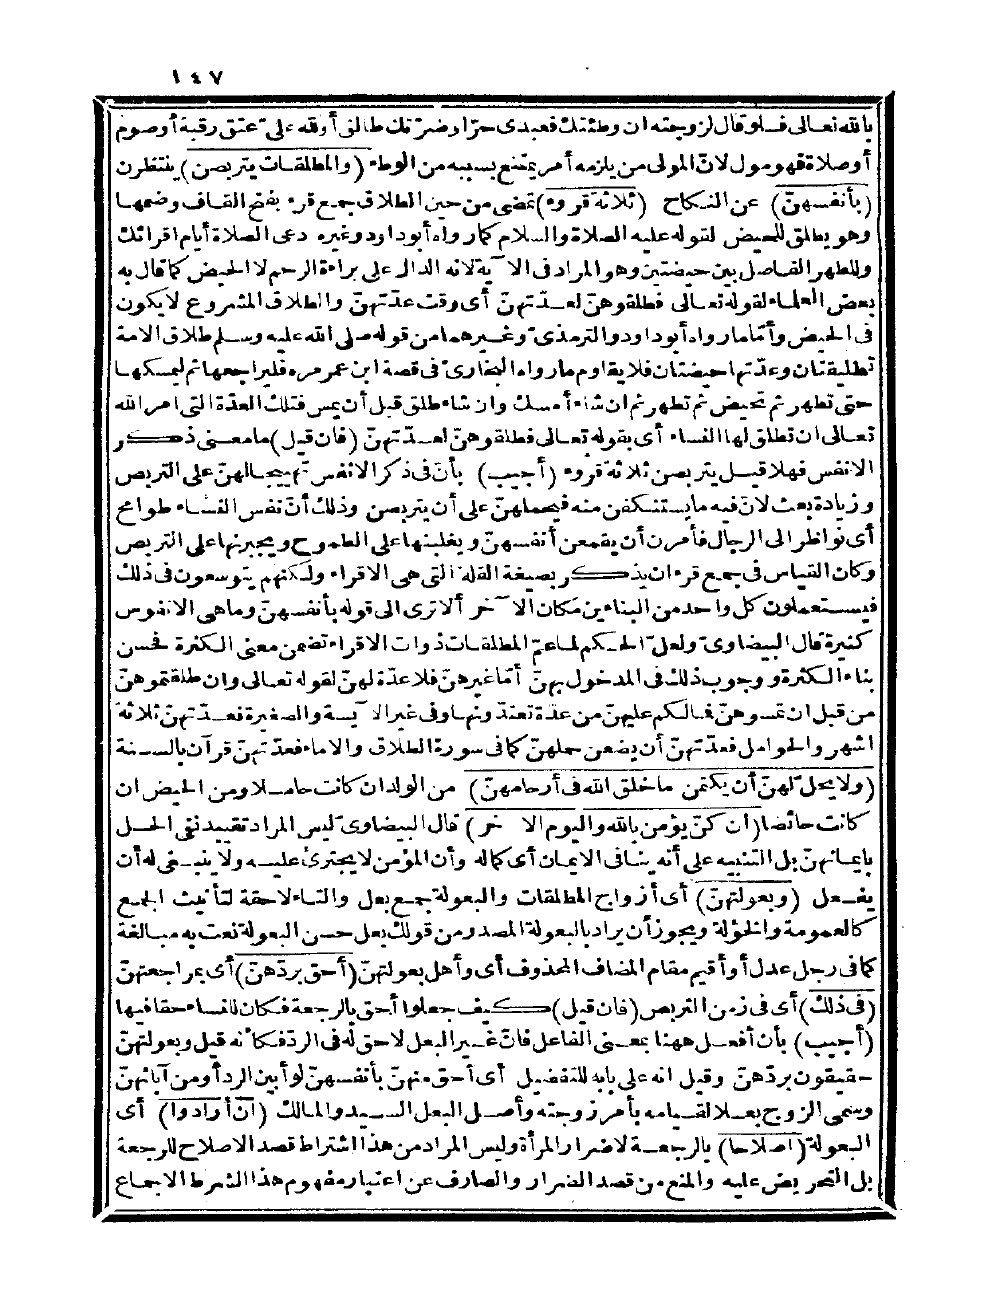 ١٤٧
بالله تعالى فلو قال لزوجته ان وطئتك فعبدى حرّ أو ضرّتك طالق أو لله علىّ عتق رقبة أو صوم
أو صلاة فهو مول لانّ المولى من يلزمه أمر يمتنع بسببه من الوطء (والمطلقات يتربصن) ينتظرن
(بأنفسهنّ) عن النكاح (ثلاثة قروء) تمضى من حين الطلاق جمع قرء بفتح القاف وضمها
وهو يطلق للحيض لقوله عليه الصلاة والسلام كما رواه أبو داود وغيره دعى الصلاة أيام اقرائك
وللطهر الفاصل بين حيضتين وهو المراد فى الآية لانه الدال على براءة الرحم لا الحيض كما قال به
بعض العلماء لقوله تعالى فطلقوهنّ لعدّتهنّ أى وقت عدّتهنّ والطلاق المشروع لا يكون
فى الحيض وأمّا ما رواه أبو داود والترمذىّ وغيرهما من قوله صلى الله عليه وسلم طلاق الامة
تطليقتان وعدّتها حيضتان فلا يقاوم ما رواه البخارىّ فى قصة ابن عمر مره فليراجعها ثم ليمسكها
حتى تطهر ثم تحيض ثم تطهر ثم ان شاء أمسك وان شاء طلق قبل أن يمس فتلك العدّة التى أمر الله
تعالى ان تطلق لها النساء أى بقوله تعالى فطلقوهنّ لعدّتهنّ (فان قيل) ما معنى ذكر
الانفس فهلا قيل يتربصن ثلاثة قروء (أجيب) بأن فى ذكر الانفس تهييجا لهنّ على التربص
وزيادة بعث لانّ فيه ما يستنكفن منه فيحملهنّ على أن يتربصن وذلك أنّ نفس النساء طوامح
أى نواظر الى الرجال فأمرن أن يقمعن أنفسهنّ ويغلبنها على الطموح ويجبرنها على التربص
وكان القياس فى جمع قرء ان يذكر بصيغة القلة التى هى الاقراء ولكنهم يتوسعون فى ذلك
فيستعملون كل واحد من البناءين مكان الآخر ألا ترى الى قوله بأنفسهنّ وما هى الا نفوس
كثيرة قال البيضاوىّ ولعلّ الحكم لما عمّ المطلقات ذوات الاقراء تضمن معنى الكثرة فحسن
بناء الكثرة ووجوب ذلك فى المدخول بهنّ أمّا غيرهنّ فلا عدّة لهنّ لقوله تعالى وان طلقتموهنّ
من قبل ان تمسوهنّ فما لكم عليهنّ من عدّة تعتدّونها وفى غير الآيسة والصغيرة فعدّتهنّ ثلاثة
أشهر والحوامل فعدّتهنّ أن يضعن حملهنّ كما فى سورة الطلاق والاماء فعدّتهنّ قرآن بالسنة
(ولا يحلّ لهنّ أن يكتمن ما خلق الله فى أرحامهنّ) من الولد ان كانت حاملا ومن الحيض ان
كانت حائضا (ان كنّ يؤمن بالله واليوم الآخر) قال البيضاوىّ ليس المراد تقييد نفى الحل
بايمانهنّ بل التنبيه على أنه ينافى الايمان أى كماله وأن المؤمن لا يجترئ عليه ولا ينبغى له أن
يفعل (وبعولتهنّ) أى أزواج المطلقات والبعولة جمع بعل والتاء لاحقة لتأنيث الجمع
كالعمومة والخؤلة ويجوز أن يراد بالبعولة المصدر من قولك بعل حسن البعولة نعت به مبالغة
كما فى رجل عدل أو أقيم مقام المضاف المحذوف أى وأهل بعولتهنّ (أحق بردّهنّ) أى بمراجعتهنّ
(فى ذلك) أى فى زمن التربص (فان قيل) كيف جعلوا أحق بالرجعة فكان للنساء حقا فيها
(أجيب) بأن أفعل ههنا بمعنى الفاعل فانّ غير البعل لا حق له فى الردّ فكأنه قيل وبعولتهنّ
حقيقون بردّهنّ وقيل انه على بابه للتفضيل أى أحق منهنّ بأنفسهنّ لو أبين الردّ أو من آبائهنّ
وسمى الزوج بعلا لقيامه بأمر زوجته وأصل البعل السيد والمالك (ان أرادوا) أى
البعولة (اصلاحا) بالرجعة لاضرار المرأة وليس المراد من هذا اشتراط قصد الاصلاح للرجعة
بل التحريض عليه والمنع من قصد الضرار والصارف عن اعتبار مفهوم هذا الشرط الاجماع